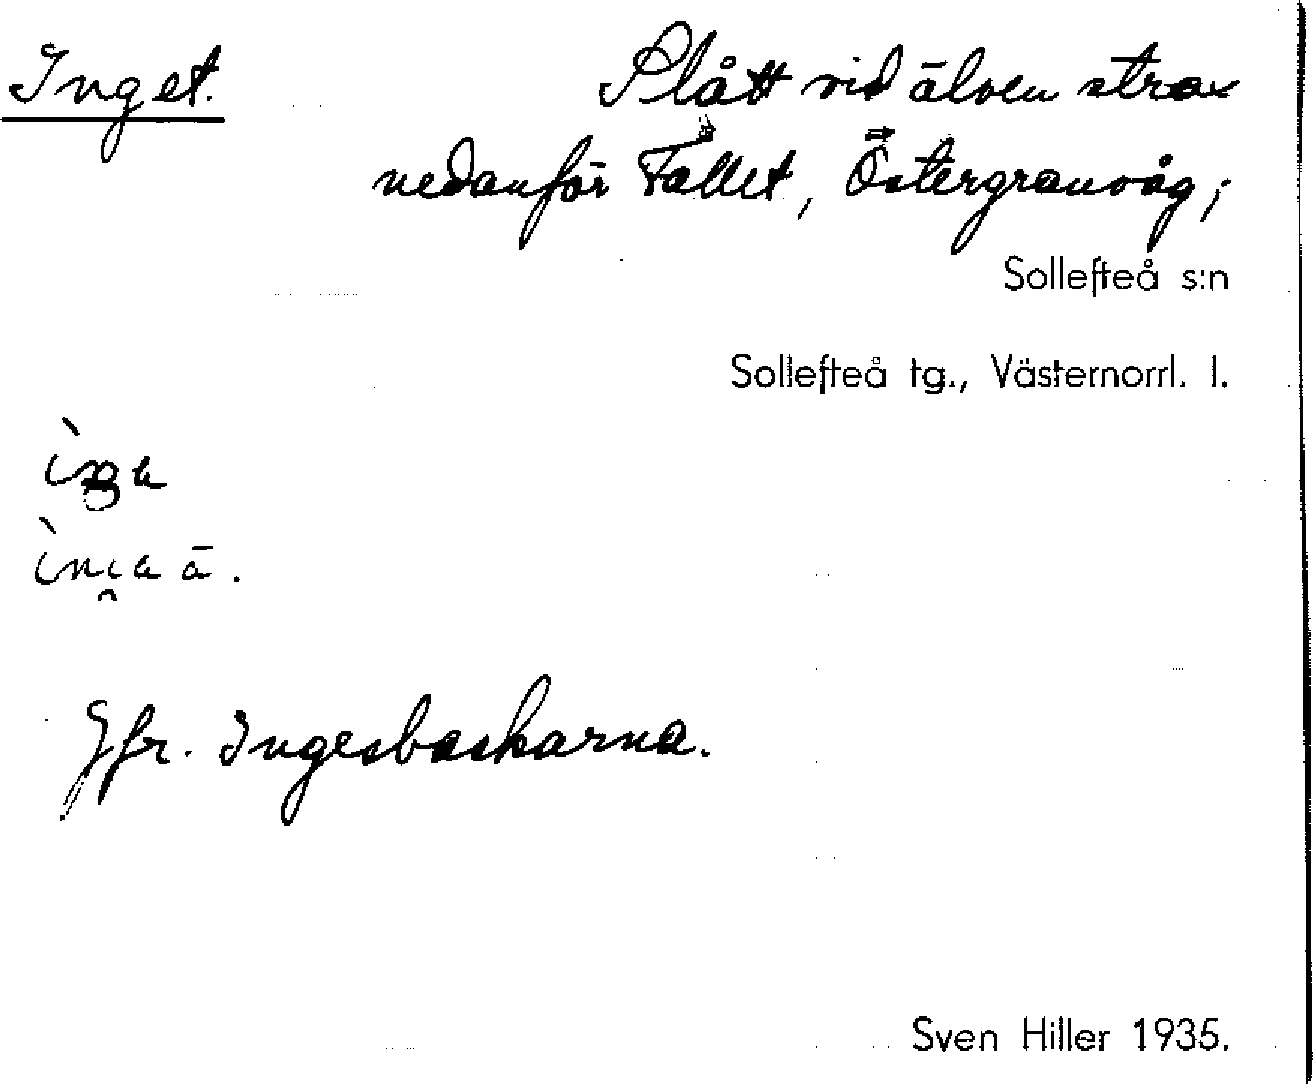 Inget. Slått vid älven strax
nedanför Fallet, Östergranvåg;
Sollefteå s:n
Sollefteå tg., Västernorrl. l.
Jfr. Ingesbaskarna.
Sven Hiller 1935.